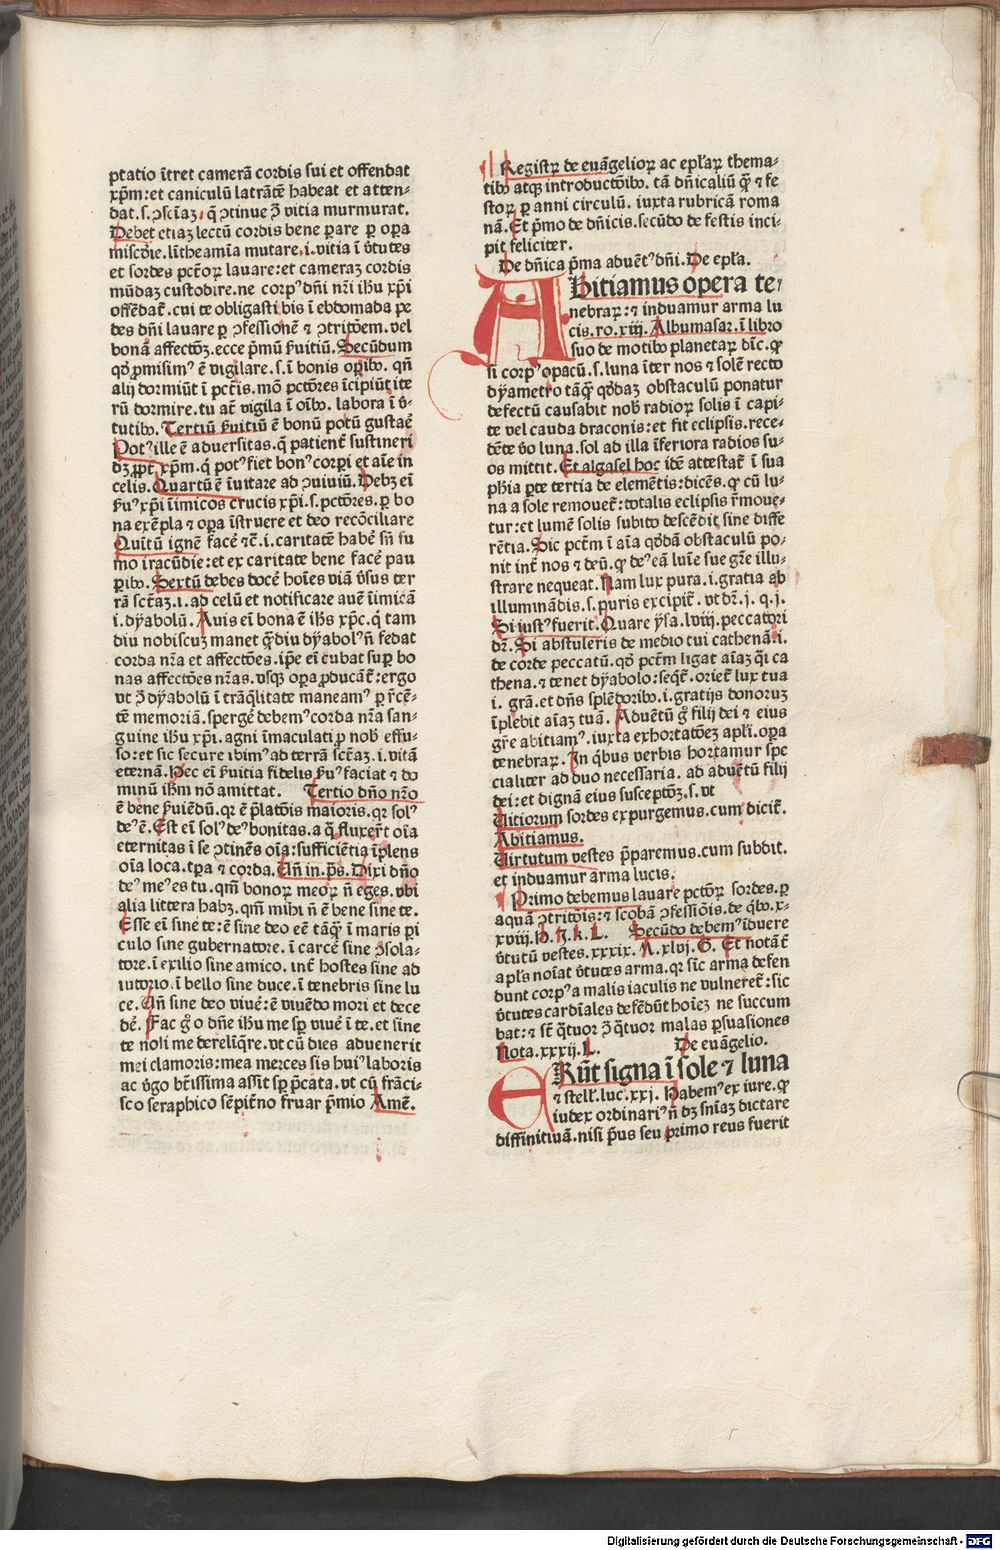 ptatio ītret camerā cordis sui et offendat
xp̄m: et caniculū latrātē habeat et atten-
dat. s. ꝯscīaꝫ, q̄ ꝯtinue ꝫ vitia murmurat.
Debet etiaꝫ lectū cordis bene pare ꝑ oꝑa
miscd̄ie. lītheamīa mutare. i. vitia ī v̄tutes
et sordes pctōꝝ lauare: et cameraꝫ cordis
mūdaꝫ custodire. ne corpꝰ dn̄i nr̄i ihū xp̄i
offēdat̄. cui te obligasti bis ī ebdomada pe
des dn̄i lauare ꝑ ꝯfessionē ⁊ ꝯtritōem. vel
bonā affectōꝫ. ecce p̄mū ẜuitiū. Secūdum
qd̓ ꝓmisimꝰ ē vigilare. s. ī bonis oꝑibꝰ. qn̄
alij dormiūt ī pctīs. mō pctōres īcipiūt ite
rū dormire. tu at̄ vigila ī oībꝰ. labora ī v̄-
tutibꝰ. Tertiū ẜuitiū ē bonū potū gustaē
Potꝰ ille ē aduersitas. q̄ patient̄ sustineri
dꝫ ꝓpt̄ xp̄m. q̄ potꝰ fiet bonꝰ corpi et aīe in
celis. Quartū ē īuitare ad ꝯuiuiū. Debꝫ eī
ẜuꝰ xp̄i īimicos crucis xp̄i. s. pctōres. ꝑ bo
na exēpla ⁊ oꝑa īstruere et deo recōciliare
Quītū ignē facē ⁊c̄. i. caritatē habē sn̄ fu
mo iracūdie: et ex caritate bene facē pau
ꝑibꝰ. Sextū debes docē hoīes viā v̄sus ter
rā sctāꝫ. i. ad celū et notificare auē īimicā
i. dyabolū. Auis eī bona ē ihs̄ xp̄c. q̄ tam
diu nobiscuꝫ manet q̄diu dyabolꝰ n̄ fedat
corda nr̄a et affectōes. ip̄e eī cubat suꝑ bo
nas affectōes nr̄as. vsqꝫ oꝑa ꝓducāt̄: ergo
vt ꝫ dyabolū ī trāq̄litate maneamꝰ ꝑ r̄cē-
tē memoriā. spergē debemꝰ corda nr̄a san-
guine ihū xp̄i. agni īmaculati ꝓ nob̄ effu-
so: et sic secure ibimꝰ ad terrā sctāꝫ. i. vitā
eternā. Hec eī ẜuitia fidelis ẜuꝰ faciat ⁊ do
minū ihm̄ nō amittat. Tertio dn̄o nr̄o
ē bene ẜuiēdū. qr ē p̄latōis maioris. qr solꝰ
deꝰ ē. Est eī solꝰ deꝰ bonitas. a q̄ fluxer̄t oīa
eternitas ī se ꝯtinēs oīa: sufficiētia īplens
oīa loca. tꝑa ⁊ corda. Un̄ in. ps̄. Dixi dn̄o
deꝰ meꝰ es tu. qm̄ bonoꝝ meoꝝ n̄ eges. vbi
alia littera habꝫ. qm̄ mihi n̄ ē bene sine te.
Esse eī sine te: ē sine deo eē tāq̄ ī maris ꝑi
culo sine gubernatore. ī carcē sine ꝯsola-
tore. ī exilio sine amico. int̄ hostes sine ad
iutorio. ī bello sine duce. ī tenebris sine lu
ce. Un̄ sine deo viuē: ē viuēdo mori et dece
dē. Fac gͦ o dn̄e ihū me sꝑ viuē ī te. et sine
te noli me derelīq̄re. vt cū dies aduenerit
mei clamoris: mea merces sis huiꝰ laboris
ac v̄go bt̄issima assit sꝑ p̄cata. vt cū frāci-
sco seraphico sēpit̄no fruar p̄mio Amē.
Registꝝ de euāgelioꝝ ac epl̄aꝝ thema-
tibꝰ atqꝫ introductōibꝰ. tā dn̄icaliū q̄ ⁊ fe
stoꝝ ꝑ anni circulū. iuxta rubricā roma
nā. Et p̄mo de dn̄icis. secūdo de festis inci-
pit feliciter.
De dn̄ica p̄ma aduētꝰ dn̄i. De epl̄a.
Abitiamus opera te-
nebraꝝ: ⁊ induamur arma lu
cis. ro. xiij. Albumasar. ī libro
suo de motibꝰ planetaꝝ dic̄. ꝙ
si corpꝰ opacū. s. luna īter nos ⁊ solē recto
dyametro tāq̄ qd̓daꝫ obstaculū ponatur
defectū causabit nob̄ radioꝝ solis ī capi-
te vel cauda draconis: et fit eclipsis. rece-
dēte v̄o luna. sol ad illa īferiora radios su-
os mittit. Et algasel hoc idē attestat̄ ī sua
phīa ꝑte tertia de elemētis: dicēs. ꝙ cū lu-
na a sole remouet̄: totalis eclipsis r̄moue-
tur: et lumē solis subito descēdit sine diffe
rētia. Sic pctm̄ ī aīa qd̓dā obstaculū po-
nit int̄ nos ⁊ deū. ꝙ deꝰ eā luīe sue gr̄e illu-
strare nequeat. Nam lux pura. i. gratia ab
illuminādis. s. puris excipit̄. vt dr̄. j. q. j.
Si iustꝰ fuerit. Quare ysa. lviij. peccatori
dr̄. Si abstuleris de medio tui cathenā. i.
de corde peccatū. qd̓ pctm̄ ligat aīaꝫ q̄i ca
thena. ⁊ tenet dyabolo: seqt̄. oriet̄ lux tua
i. grā. et dn̄s splēdoribꝰ. i. gratijs donoruꝫ
īplebit aīaꝫ tuā. Aduētū gͦ filij dei ⁊ eius
gr̄e abitiamꝰ. iuxta exhortatōeꝫ apl̄i. oꝑa
tenebraꝝ. In q̄bus verbis hortamur spe
cialiter ad duo necessaria. ad aduētū filij
dei: et dignā eius susceptōꝫ. s. vt
Uitiorum sordes expurgemus. cum dicit̄.
Abitiamus.
Uirtutum vestes p̄paremus. cum subdit.
et induamur arma lucis.
Primo debemus lauare pctōꝝ sordes. ꝑ
aquā ꝯtritōis: ⁊ scobā ꝯfessiōis. de q̄bꝰ. x-
xviij. H. J. k. L. Secūdo debemꝰ iduere
v̄tutū vestes. xxxix. A. xlvj. G. Et notāt̄
apl̄s noīat v̄tutes arma. qr sīc arma defen
dunt corpꝰ a malis iaculis ne vulneret̄: sic
v̄tutes cardiales defēdūt hoīeꝫ ne succum
bat: ⁊ st̄ q̄tuor ꝫ q̄tuor malas ꝑsuasiones
Nota. xxxij. L. De euāgelio.
Erūt signa ī sole ⁊ luna
⁊ stell̄. luc. xxj. Habemꝰ ex iure. ꝙ
iudex ordinariꝰ n̄ dꝫ snīaꝫ dictare
diffinitiuā. nisi p̄us seu primo reus fuerit
Digitalisierung gefördert durch die Deutsche Forschungsgemeinschaft - DFG